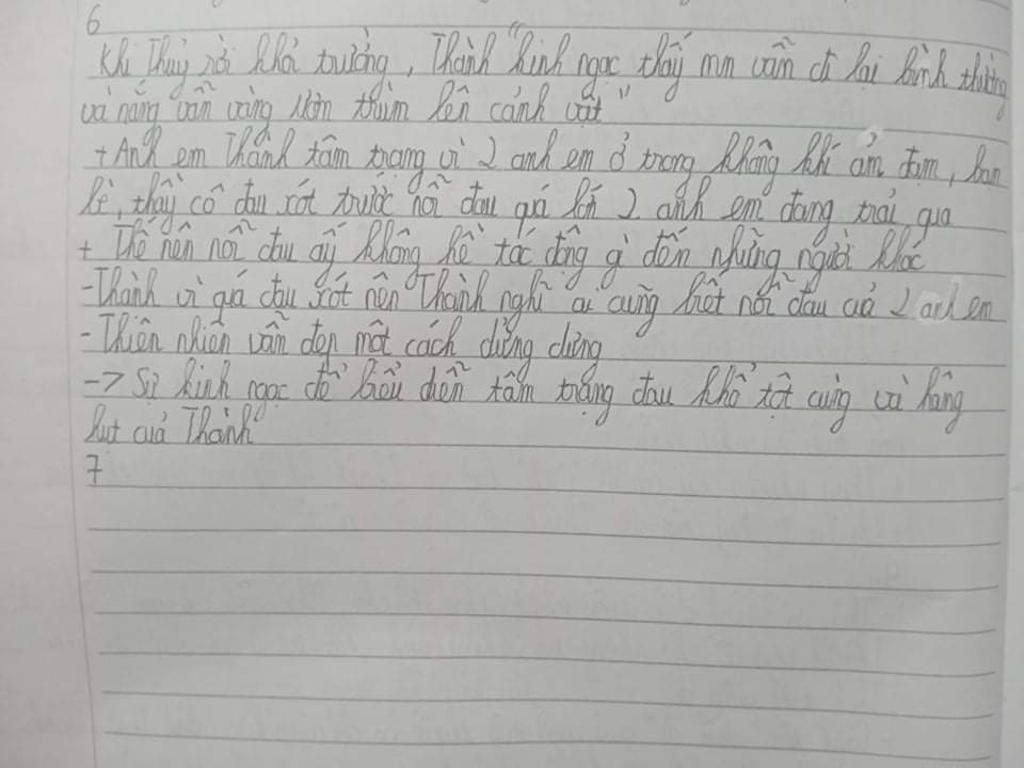 6
Khi Thủy rời khỏi trường, Thành "kinh ngạc thấy mn vẫn đi lại bình thường
và nắng vẫn vàng ươm trùm lên cảnh vật"
+ Anh em Thành tâm trạng vì 2 anh em ở trong không khí ảm đạm, bạn
bè, thầy cô đau xót trước nỗi đau quá lớn 2 anh em đang trải qua
+ Thế nên nỗi đau ấy không hề tác động gì đến những người khác
- Thành vì quá đau xót nên Thành nghĩ ai cũng biết nỗi đau của 2 anh em
- Thiên nhiên vẫn đẹp một cách dửng dưng
-> Sự kinh ngạc đó biểu diễn tâm trạng đau khổ tột cùng và hẫng
hụt của Thành
7